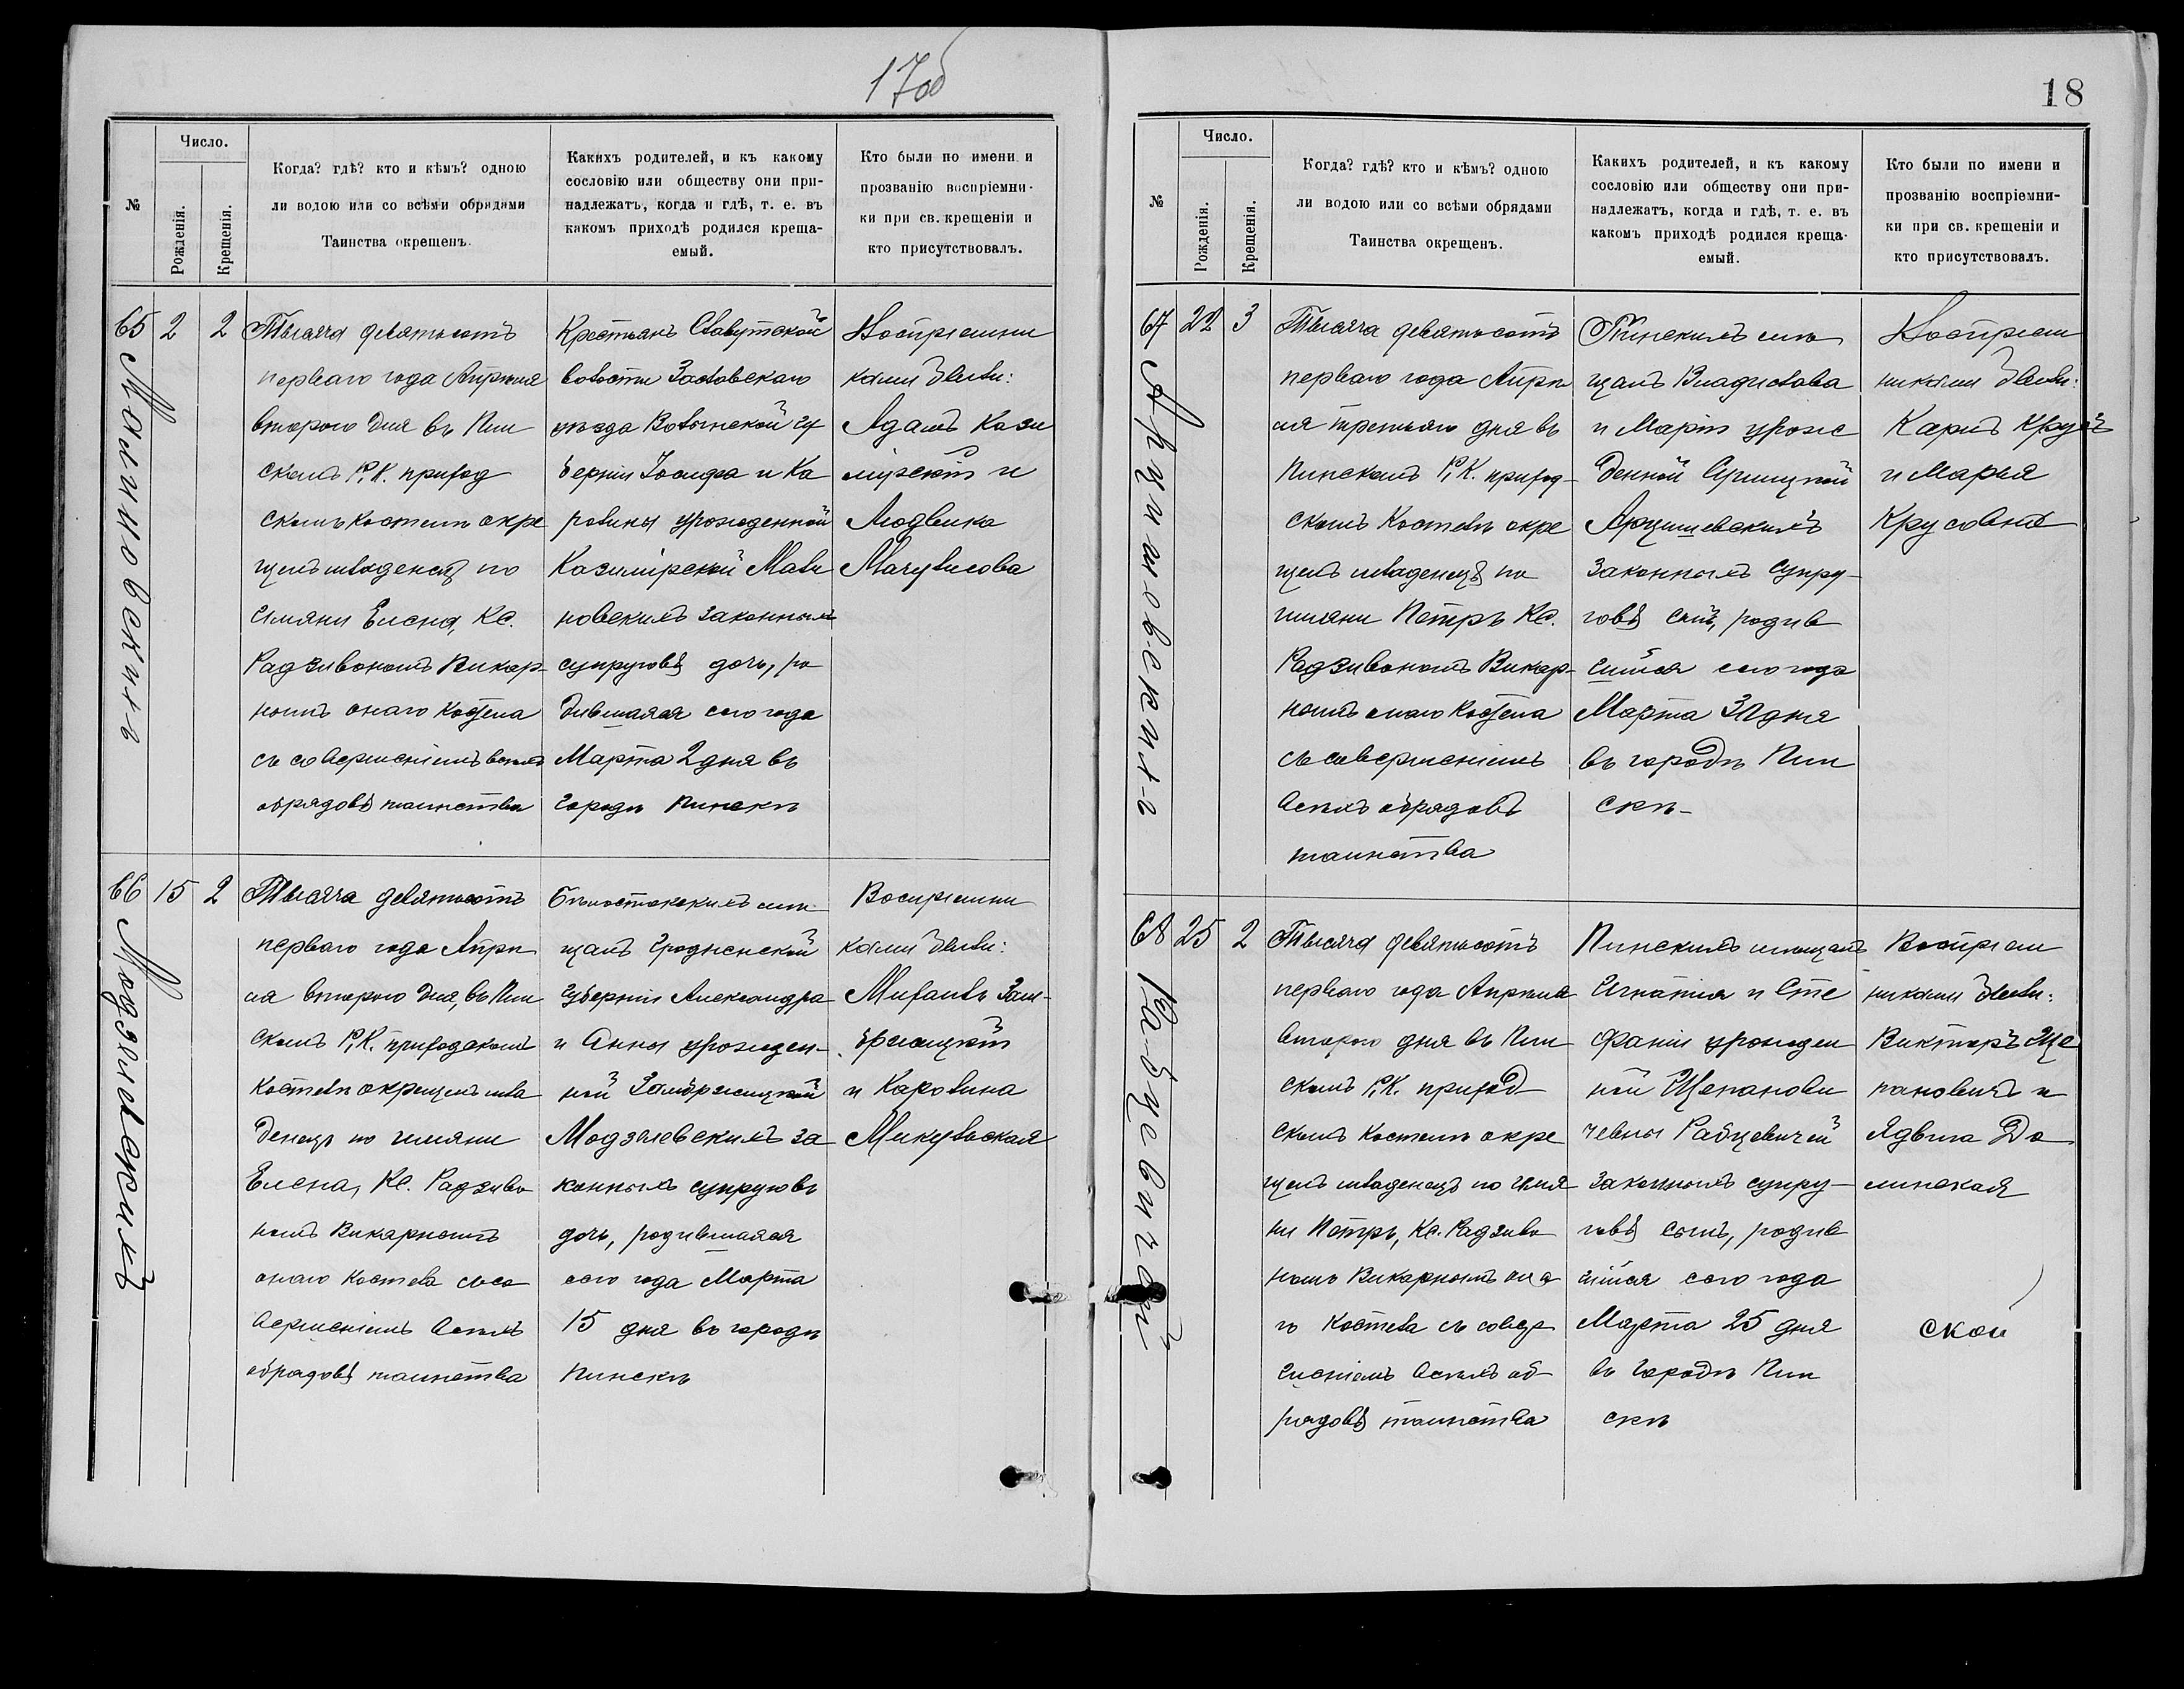 17об
№
Число.
Рожденія.
Крещенія.
Когда? гдѣ? кто и кѣмъ? одною
ли водою или со всѣми обрядами
Таинства окрещенъ.
Какихъ родителей, и къ какому
сословію или обществу они при-
надлежатъ, когда и гдѣ, т. е. въ
какомъ приходѣ родился креща-
емый.
Кто были по имени и
прозванію воспріемни-
ки при св. крещеніи и
кто присутствовалъ.
65
2
2
Малиновскихъ
Тысяча девятьсотъ
перваго года Апрѣля
втораго дня въ Пин
скомъ Р. К. приход
скомъ костелѣ окре
щенъ младенецъ по
имяни Елена, Кс.
Радзивономъ Викар-
нымъ онаго костела
съ совершеніемъ всѣхъ
обрядовъ таинства
Крестьянъ Славутской
волости Заславскаго
уѣзда Волынской гу
берніи Іосифа и Ка
ролины урожденной
Казимірской Мали
новскихъ законныхъ
супруговъ дочь, ро
дившаяся сего года
Марта 2 дня въ
городѣ Пинскѣ
Воспріемни
ками были:
Адамъ Кази
мірскій и
Людвика
Мачульсова
66
15
2
Модзелевскихъ
Тысяча девятьсотъ
перваго года Апрѣ
ля втораго дня, въ Пин
скомъ Р. К. приходскомъ
костелѣ окрещенъ мла
денецъ по имяни
Елена, Кс. Радзиво
номъ Викарнымъ
онаго костела съ со
вершеніемъ всѣхъ
обрядовъ таинства
Бѣлостокскихъ мѣ
щанъ Гродненской
губерніи Александра
и Анны урожден-
ной Замбржицкой
Модзелевскихъ за
конныхъ супруговъ
дочь, родившаяся
сего года Марта
15 дня въ городѣ
Пинскѣ
Воспріемни
ками были:
Михаилъ Зам-
бржицкій
и Каролина
Микульская
18
№
Число.
Рожденія.
Крещенія.
Когда? гдѣ? кто и кѣмъ? одною
ли водою или со всѣми обрядами
Таинства окрещенъ.
Какихъ родителей, и къ какому
сословію или обществу они при-
надлежатъ, когда и гдѣ, т. е. въ
какомъ приходѣ родился креща-
емый.
Кто были по имени и
прозванію воспріемни-
ки при св. крещеніи и
кто присутствовалъ.
67
22
3
Арцишевскихъ
Тысяча девятьсотъ
перваго года Апрѣ
ля третьяго дня въ
Пинскомъ Р. К. приход-
скомъ Костелѣ окре
щенъ младенецъ по
имяни Петръ Кс.
Радзивономъ Викар-
нымъ онаго Костела
съ совершеніемъ
всѣхъ обрядовъ
таинства
Пинскихъ мѣ
щанъ Владислава
и Маріи урож
денной
Арцишевскихъ
законныхъ супру-
говъ сынъ, родив
шійся сего года
Марта дня
въ городѣ Пин
скѣ-
Воспріем
никами были:
Карлъ
и Марья
68
25
2
Рабцевичей
Тысяча девятьсотъ
перваго года Апрѣля
втораго дня въ Пин
скомъ Р. К. приход-
скомъ костелѣ окре
щенъ младенецъ по имя
ни Петръ, Кс. Радзиво
номъ Викарнымъ она
го костела съ совер
шеніемъ всѣхъ об-
рядовъ таинства
Пинскихъ мѣщанъ
Игнатія и Сте
фаніи урожден
ной Щепанови
чевны Рабцевичей
законныхъ супру-
говъ сынъ, родив
шійся сего года
Марта 25 дня
въ городѣ Пин
скѣ
Воспріем
никами были:
Викторъ Ще
пановичъ и
Ядвига До
линская
ской